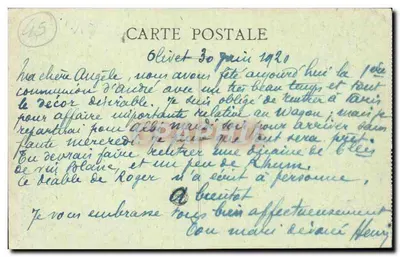 45
CARTE POSTALE
Olivet 30 Juin 1920
Ma chère Angèle, nous avons fêté aujourd'hui la 1ère
communion d'André avec un très beau temps et tout
le décor désirable. Je suis obligé de rentrer à Paris
pour affaire importante relative au Wagon, mais je
repartirai pour mardi soir pour arriver sans
faute mercredi
Tu devrais faire rentrer une dizaine de
de vin blanc et un peu de Rhum.
Le diable de Roger n'a écrit à personne.
a bientôt
Je vous embrasse tous bien affectueusement
Ton mari dévoué Henri